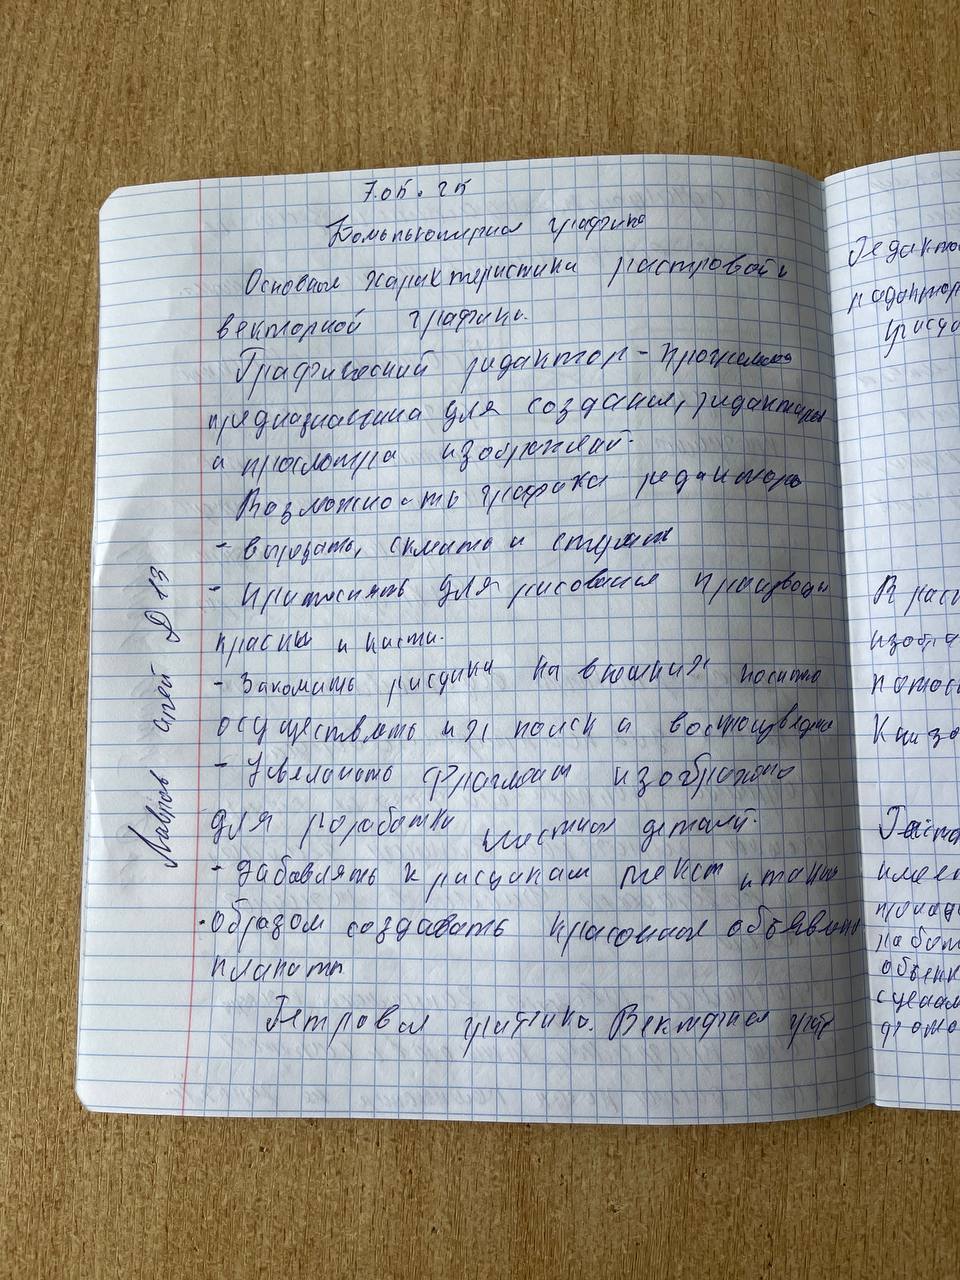 7.05.25
Компьютерная графика
Основные характеристики растровой и
векторной графики.
Графический редактор - программа
предназначена для создания, редактиры
и просмотра изображений.
Возможность графика редактора
- вырезать, склеить и стирать
- применять для рисования произволь
краски и кисти.
- Закомить рисунки на внешних носител
осуществлять их поиск и воспроизведение
- Увеличать фрагмент изображения
для роработки местных деталей.
- дабавлять к рисункам текст и таким
образом создавать красочные объявлени
плакаты
графика. Векторная граф
Лавров Д 13
Редакто
редактор
рисо
В рас
изобра
потос
Книзо
Раст
имее
работ
объекн